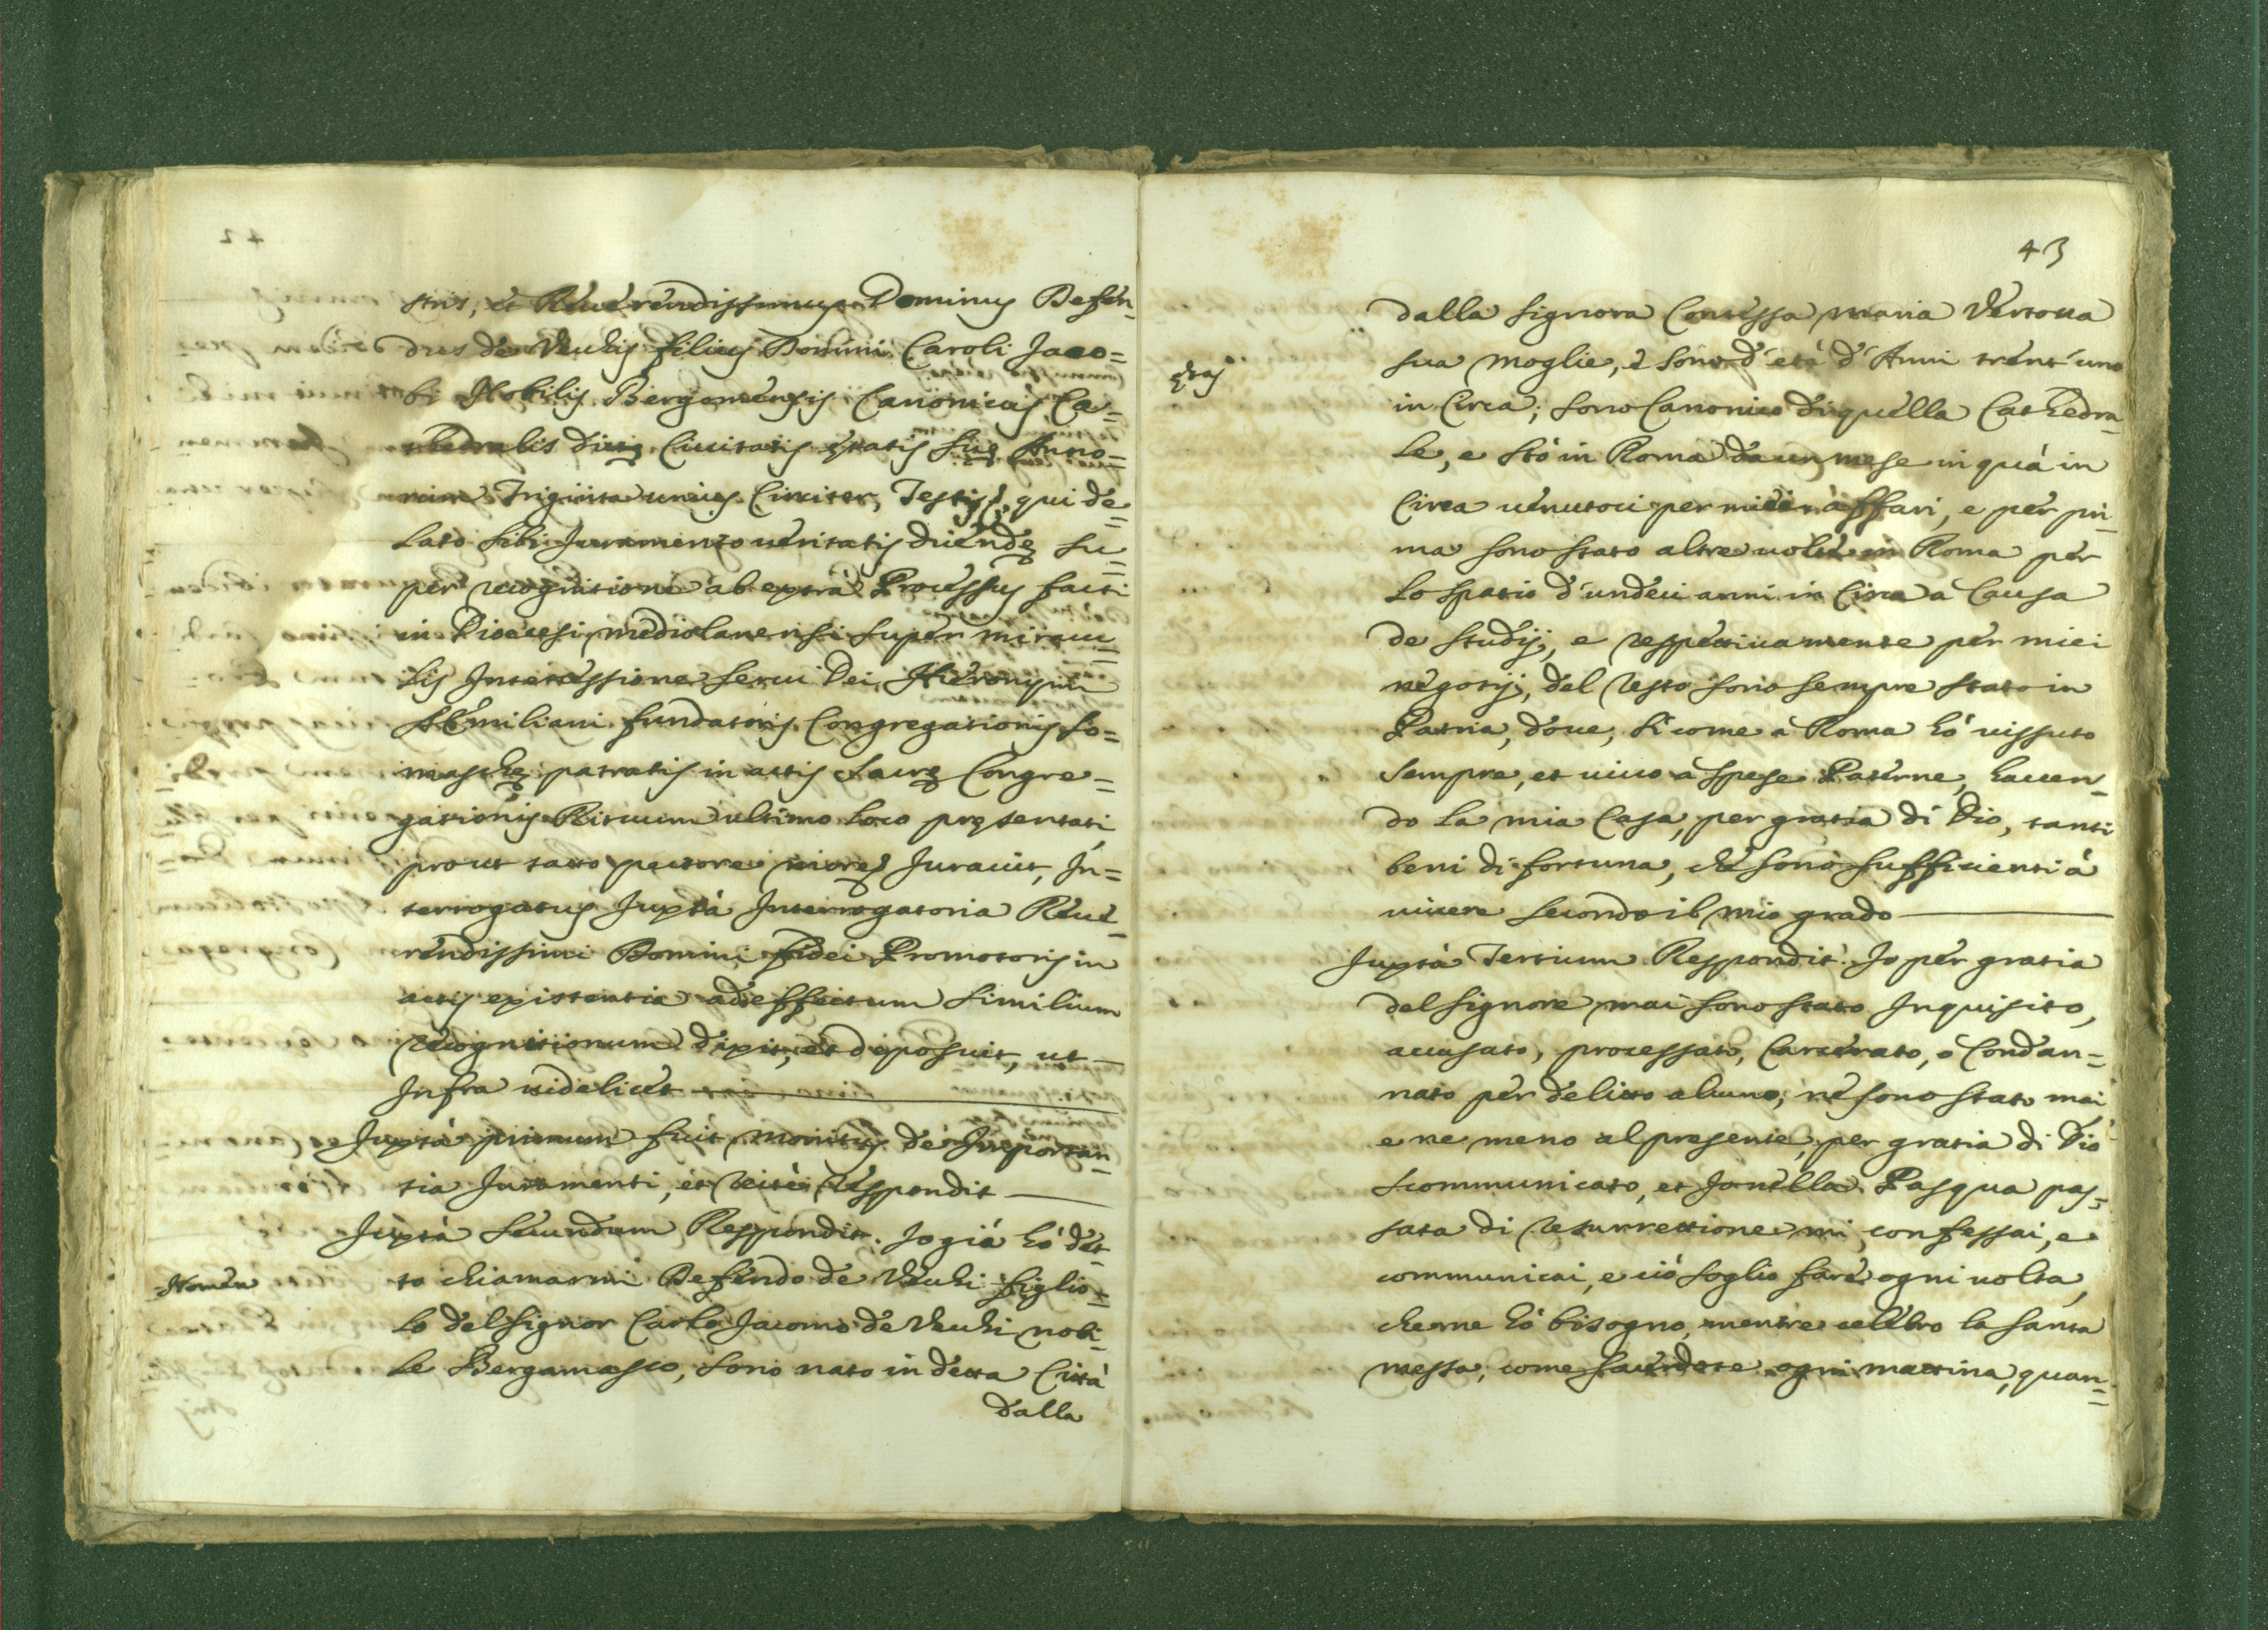 stris, et Reuerendissimus Dominus Defen-
dus de Vechis filius Domini Caroli Jaco=
bi Nobilis Bergomensis Canonicus Ca=
thedralis dictę Ciuitatis ętatis suę Anno=
rum Triginta unius Circiter, Testis, qui de=
lato sibi Juramento ueritatis dicendę su=
per recognitione ab extra Processus facti
in Diocesi mediolanensi super miracu=
lis Intercessione serui Dei Hieronymi
AEmiliani fundatoris Congregationis So=
maschę patratis in actis Sacrę Congre=
gationis Rituum ultimo loco pręsentati,
prout tacto pectore more Jurauit, In=
terrogatus Juxtà Interrogatoria Reue=
rendissimi Domini fidei Promotoris in
actis existentia ad effectum similium
recognitionum dixit, et deposuit, ut
Infra uidelicet
Juxtà primum fuit monitus de Importan=
tia Juramenti, et recte respondit
Juxtà secundum Respondit. Io già hó det
Nomen
to chiamarmi Defendo de Vechi figlio=
lo del signor Carlo Jacomo de Vechi nobi=
le Bergamasco, sono nato in detta Città
dalla
43
dalla signora Contessa maria Vertoua
ętas
sua moglie, e sono d'età d'Anni trent'uno
in Circa; sono Canonico di quella Cathedra=
le, e stò in Roma da un mese in quà in
Circa uenutoci per miei affari, e per pri=
ma sono stato altre uolte in Roma per
lo spatio d'undeci anni in Circa a Causa
de studij, e respettiuamente per miei
negotij, del resto sono sempre stato in
Patria, doue, si come a Roma hó uissuto
sempre, et uiuo a spese Paterne, hauen=
do la mia Casa, per gratia di Dio, tanti
beni di fortuna, che sono sufficienti á
uiuere secondo il mio grado
Juxtà Tertium Respondit. Io per gratia
del signore mai sono stato Inquisito,
accusato, processato, Carcerato, ó Condan=
nato per delitto alcuno, ne sono stato mai,
e ne meno al presente, per gratia di Dio
scommunicato, et Io nella Pasqua pas=
sata di resurrettione mi confessai, e
communicai, e ció soglio fare ogni uolta,
che ne hó bisogno, mentre celebro la santa
messa, come sacerdote ogni mattina, quan=